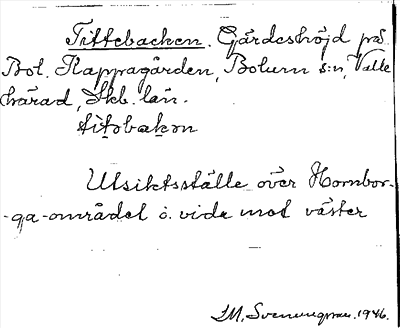 Tittebacken. Gärdeshöjd på
Bol. Kappagården, Bolum s:n, Valle
härad, Skb. län.
titobakon
Utsiktsställe över Hornbor-
-ga-området o. vida mot väster
1946.